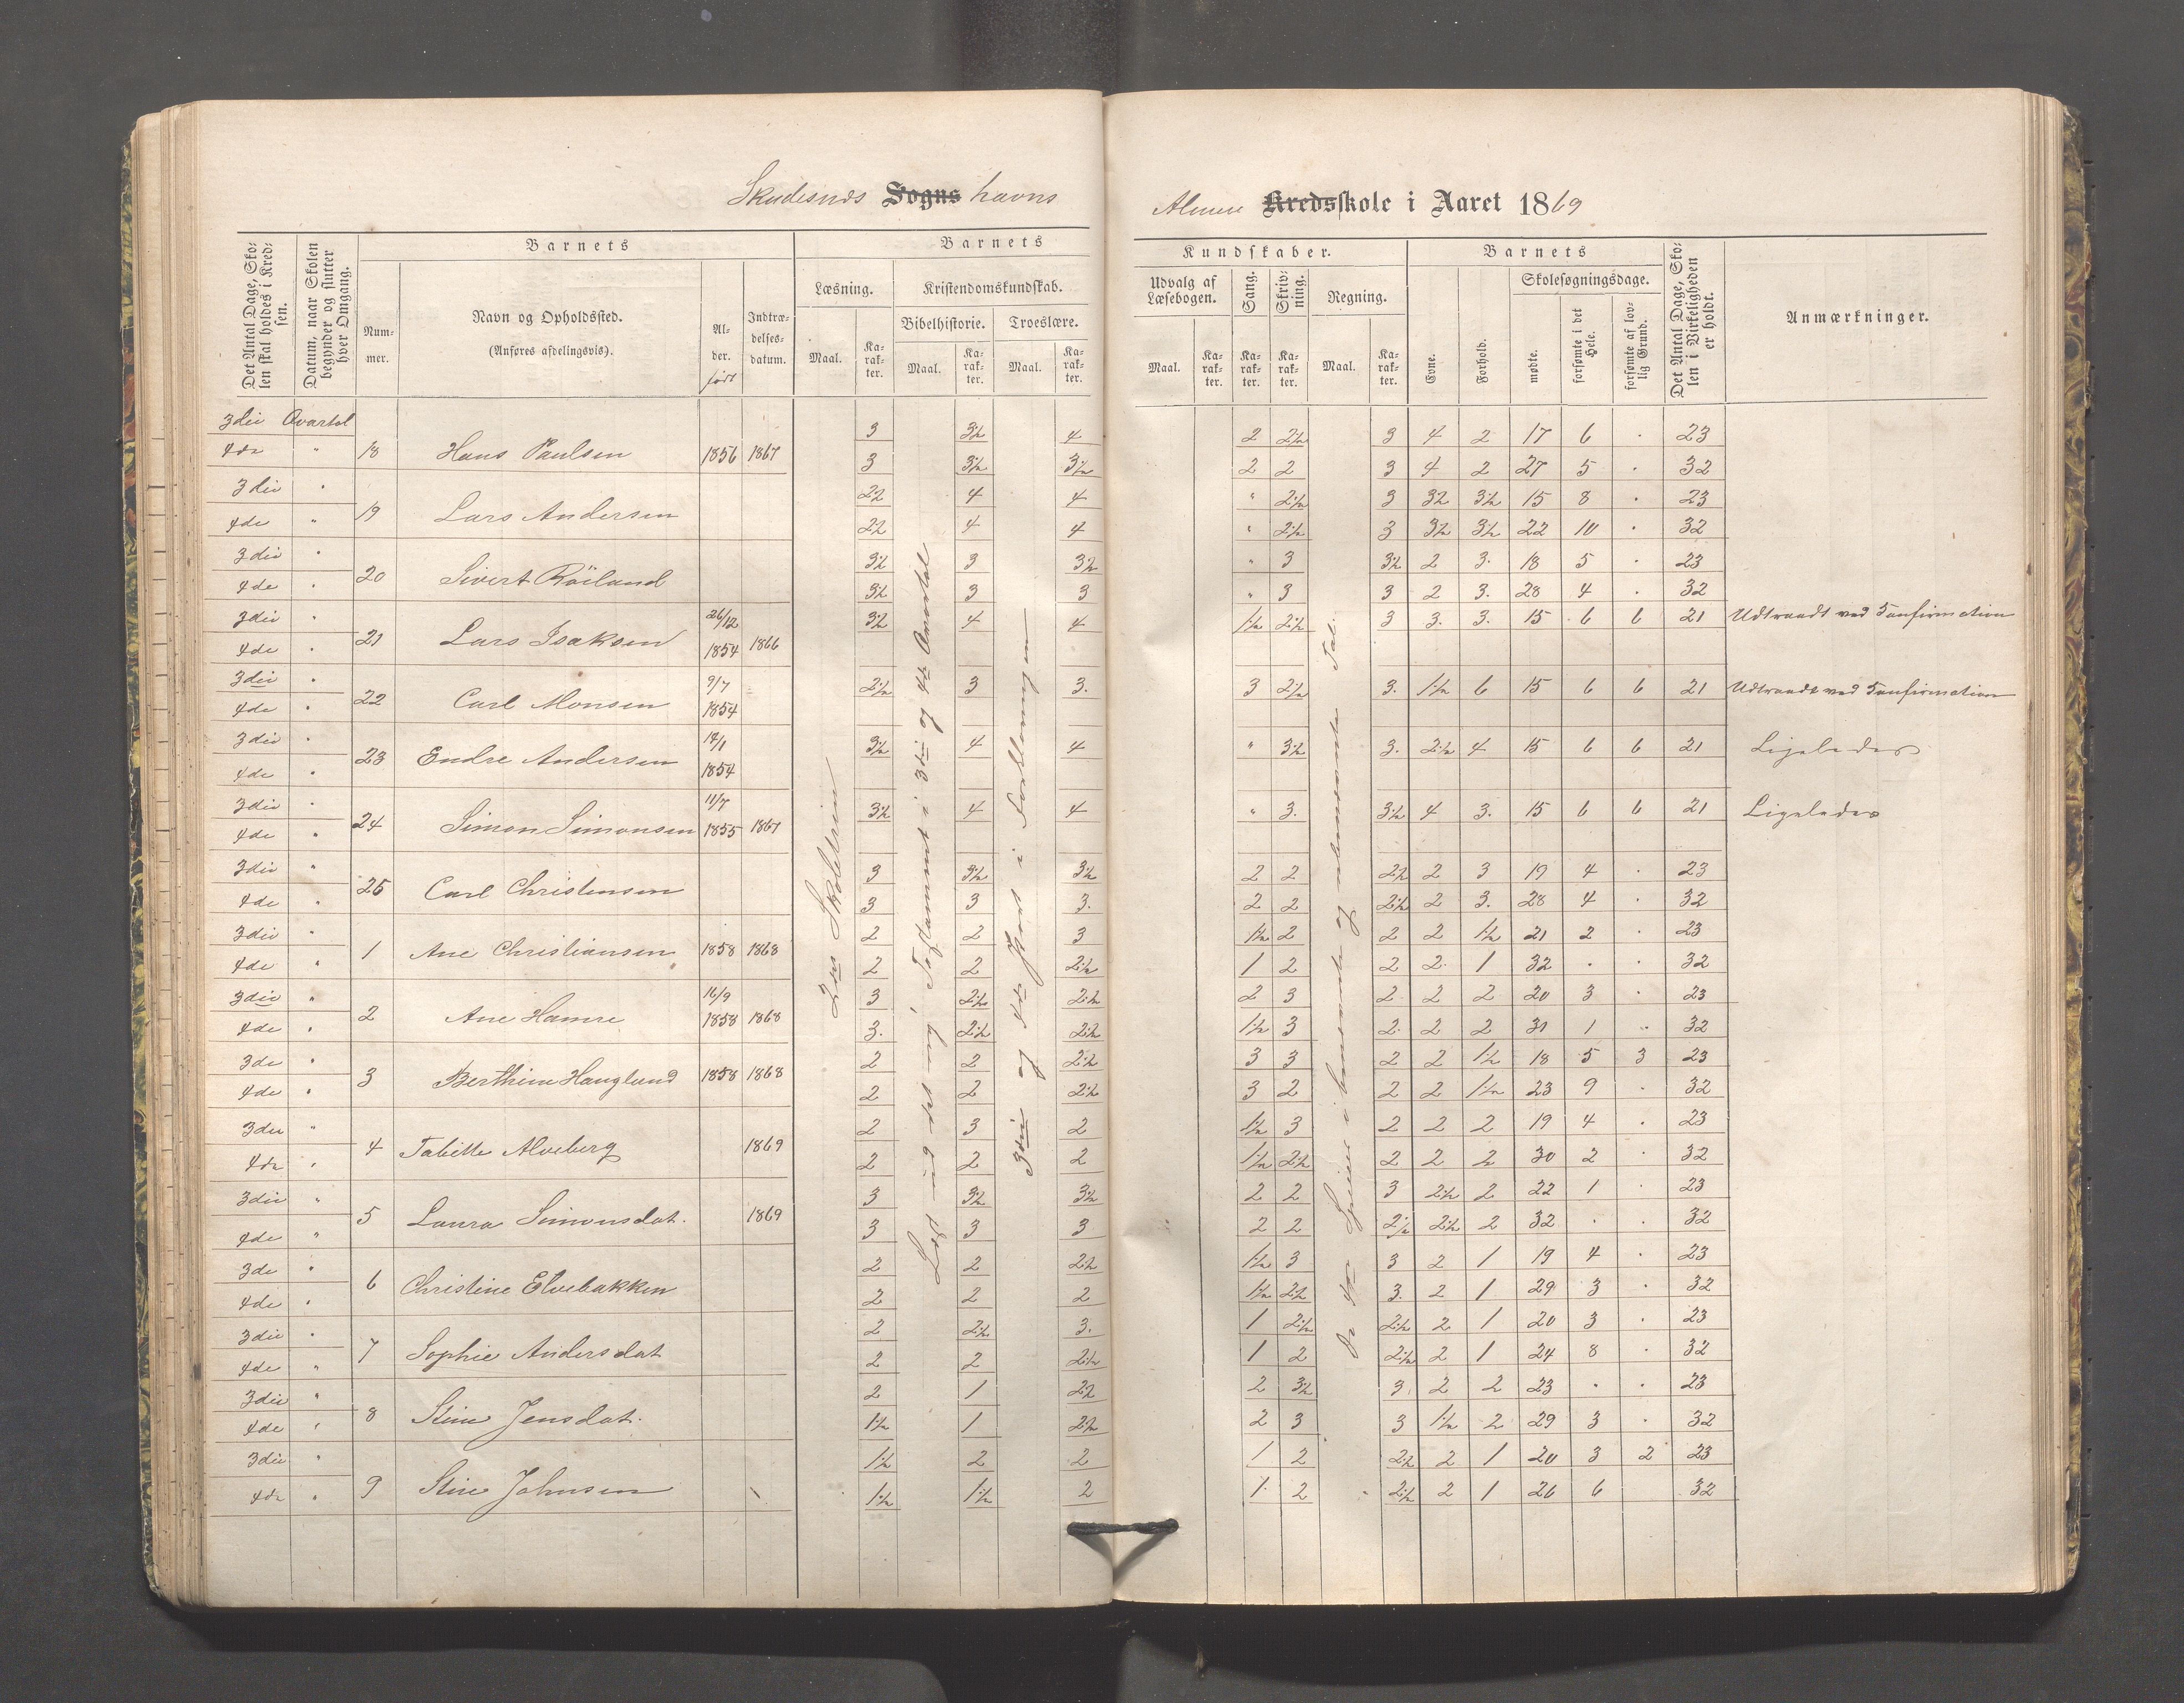 Skudesnæs Sogns havns
Almue Kredsskole i Aaret 1869
Det Antal Dage, Skolen skal holdes i Kredsen.
Datum, naar Skolen begynder og slutter hver Omgang.
Barnets
Nummer.
Navn og Opholdssted.
(Anføres afdelingsvis).
Alder.
født
Indtrædelsesdatum.
Barnets
Læsning.
Kristendomskundskab.
Bibelhistorie.
Troeslære.
Maal.
Karakter.
Maal.
Karakter.
Maal.
Karakter.
Kundskaber.
Udvalg af Læsebogen.
Sang.
Skrivning.
Regning.
Maal.
Karakter.
Karakter.
Karakter.
Maal.
Karakter.
Barnets
Evne.
Forhold.
Skolesøgningsdage.
mødte.
forsømte i det Hele.
forsømte af lovlig Grund.
Det Antal Dage, Skolen i Virkeligheden er holdt.
Anmærkninger.
3die Qvartal 3 3½ 4 2 2½ 3 4 2 17 6 . 23
4de " 18 Hans Paulsen 1856 1867 3 3½ 3½ 2 2 3 4 2 27 5 . 32
3die " 2½ 4 4 " 2½ 3 3½ 3½ 15 8 . 23
4de " 19 Lars Andersen 2½ 4 4 " 2½ 3 3½ 3½ 22 10 . 32
3die " 3½ 3 3½ " 3 3½ 2 3. 18 5 . 23
4de " 20 Sivert Röiland 3½ 3 3 " 3 3 2 3. 28 4 . 32
3die " 26/12 3½ 4 4 1½ 2½ 3 3. 3. 15 6 6 21 Udtraadt ved Konfirmation
4de " 21 Lars Isaksen 1854 1866
3die " 9/7 2½ 3 3. 3 2½ 3. 1½ 6 15 6 6 21 Udtraadt ved Konfirmation
4de " 22 Carl Monsen 1854
3die " 3½ 4 4 " 3½ 3. 2½ 4 15 6 6 21 Ligeledes
4de " 23 Endre Andersen 1854
3die " 11/7 3½ 4 4 " 3. 3½ 4 3. 15 6 6 21 Ligeledes
4de " 24 Simon Simonsen 1855 1867
3die " 3 3½ 3½ 2 2 2½ 2 3 19 4 . 23
4de " 25 Carl Christensen 3 3 3. 2 2 2½ 2 3. 28 4 . 32
3die " 2 2 3 1½ 2 2 2 1½ 21 2 . 23
4de " 1 Ane Christiansen 1858 1868 2 2 2½ 1 2 2 2 1 32 . . 32
3die " 16/9 3 2½ 2½ 2 3 2 2 2 20 3 . 23
4de " 2 Ane Hamre 1858 1868 3. 2½ 2½ 1½ 3 2 2 2 31 1 . 32
3de " 2 2 2½ 3 3 2 2 1½ 18 5 3 23
4de " 3 Berthine Hauglund 1858 1868 2 2 2½ 3 2 2 2 1½ 23 9 . 32
3die " 2 3 2 1½ 3 2 2 2 19 4 . 23
4de " 4 Tabitte Alveberg 1869 2 2 2 1½ 2½ 2 2 2 30 2 . 32
3die " 3 3½ 3½ 2 2 3 2½ 2 22 1 . 23
4de " 5 Laura Simonsdat. 1869 3 3 3 2 2 2½ 2½ 2 32 . . 32
3de " 2 2 2½ 1½ 3 3 2 1 19 4 . 23
4de " 6 Christine Elvebakken 2 2 2 1½ 2½ 3. 2 1 29 3 . 32
3die " 2 2½ 3. 1 2½ 2½ 2 1 20 3 . 23
4de " 7 Sophie Andersdat 2 2 2½ 1 2 2½ 2 1 24 8 . 32
3die " 2 1 2½ 2 3½ 3. 2 2 23 . . 23
4de " 8 Stine Jensdat. 1½ 1 2½ 2 3 3 1½ 2 29 3 . 32
3die " 1½ 2 2 1 2 2½ 2 1 20 3 2 23
4de " 9 Stine Johnsen 1½ 1½ 2 1. 2 2½ 2 1 26 6 32
Skoletrin
Læst ud det nye Testament i 3die og 4de Qvartal
3die og 4de Part i Forklaringen
De 4re Species i benævnte og ubenævnte Tal.